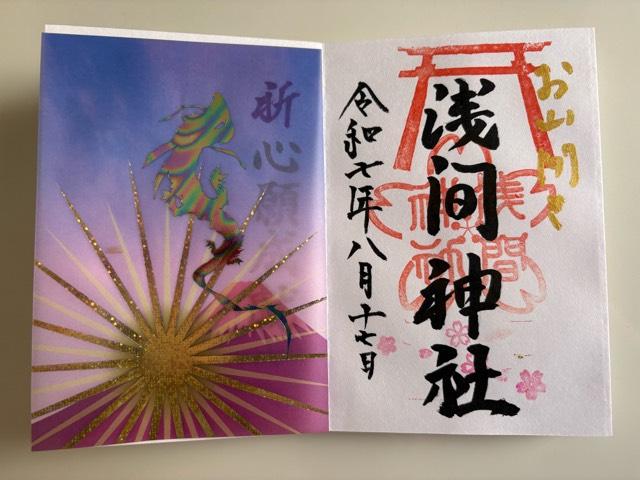 お山開き
浅間神社
浅間
神社
令和七年八月十七日
祈心願